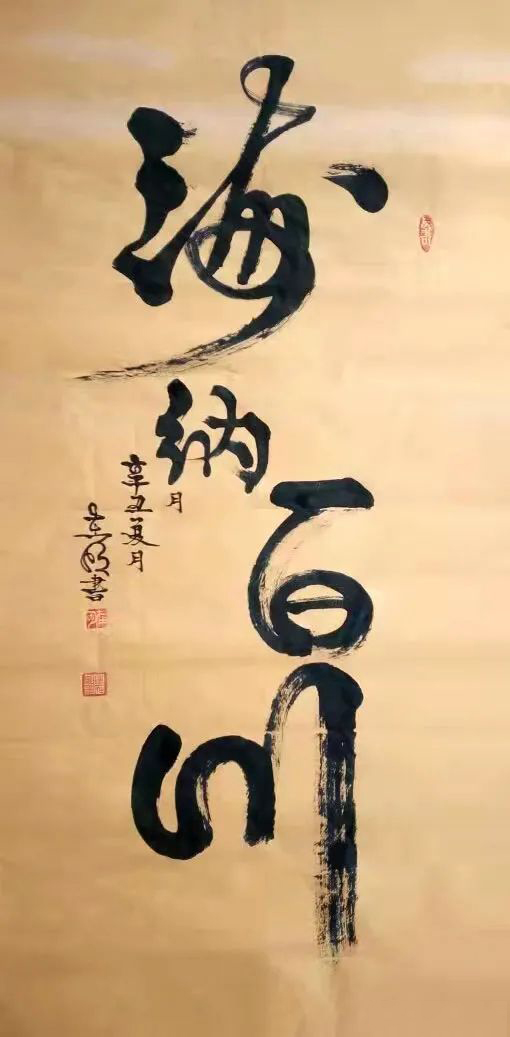 海纳百川
月
辛丑夏月
書